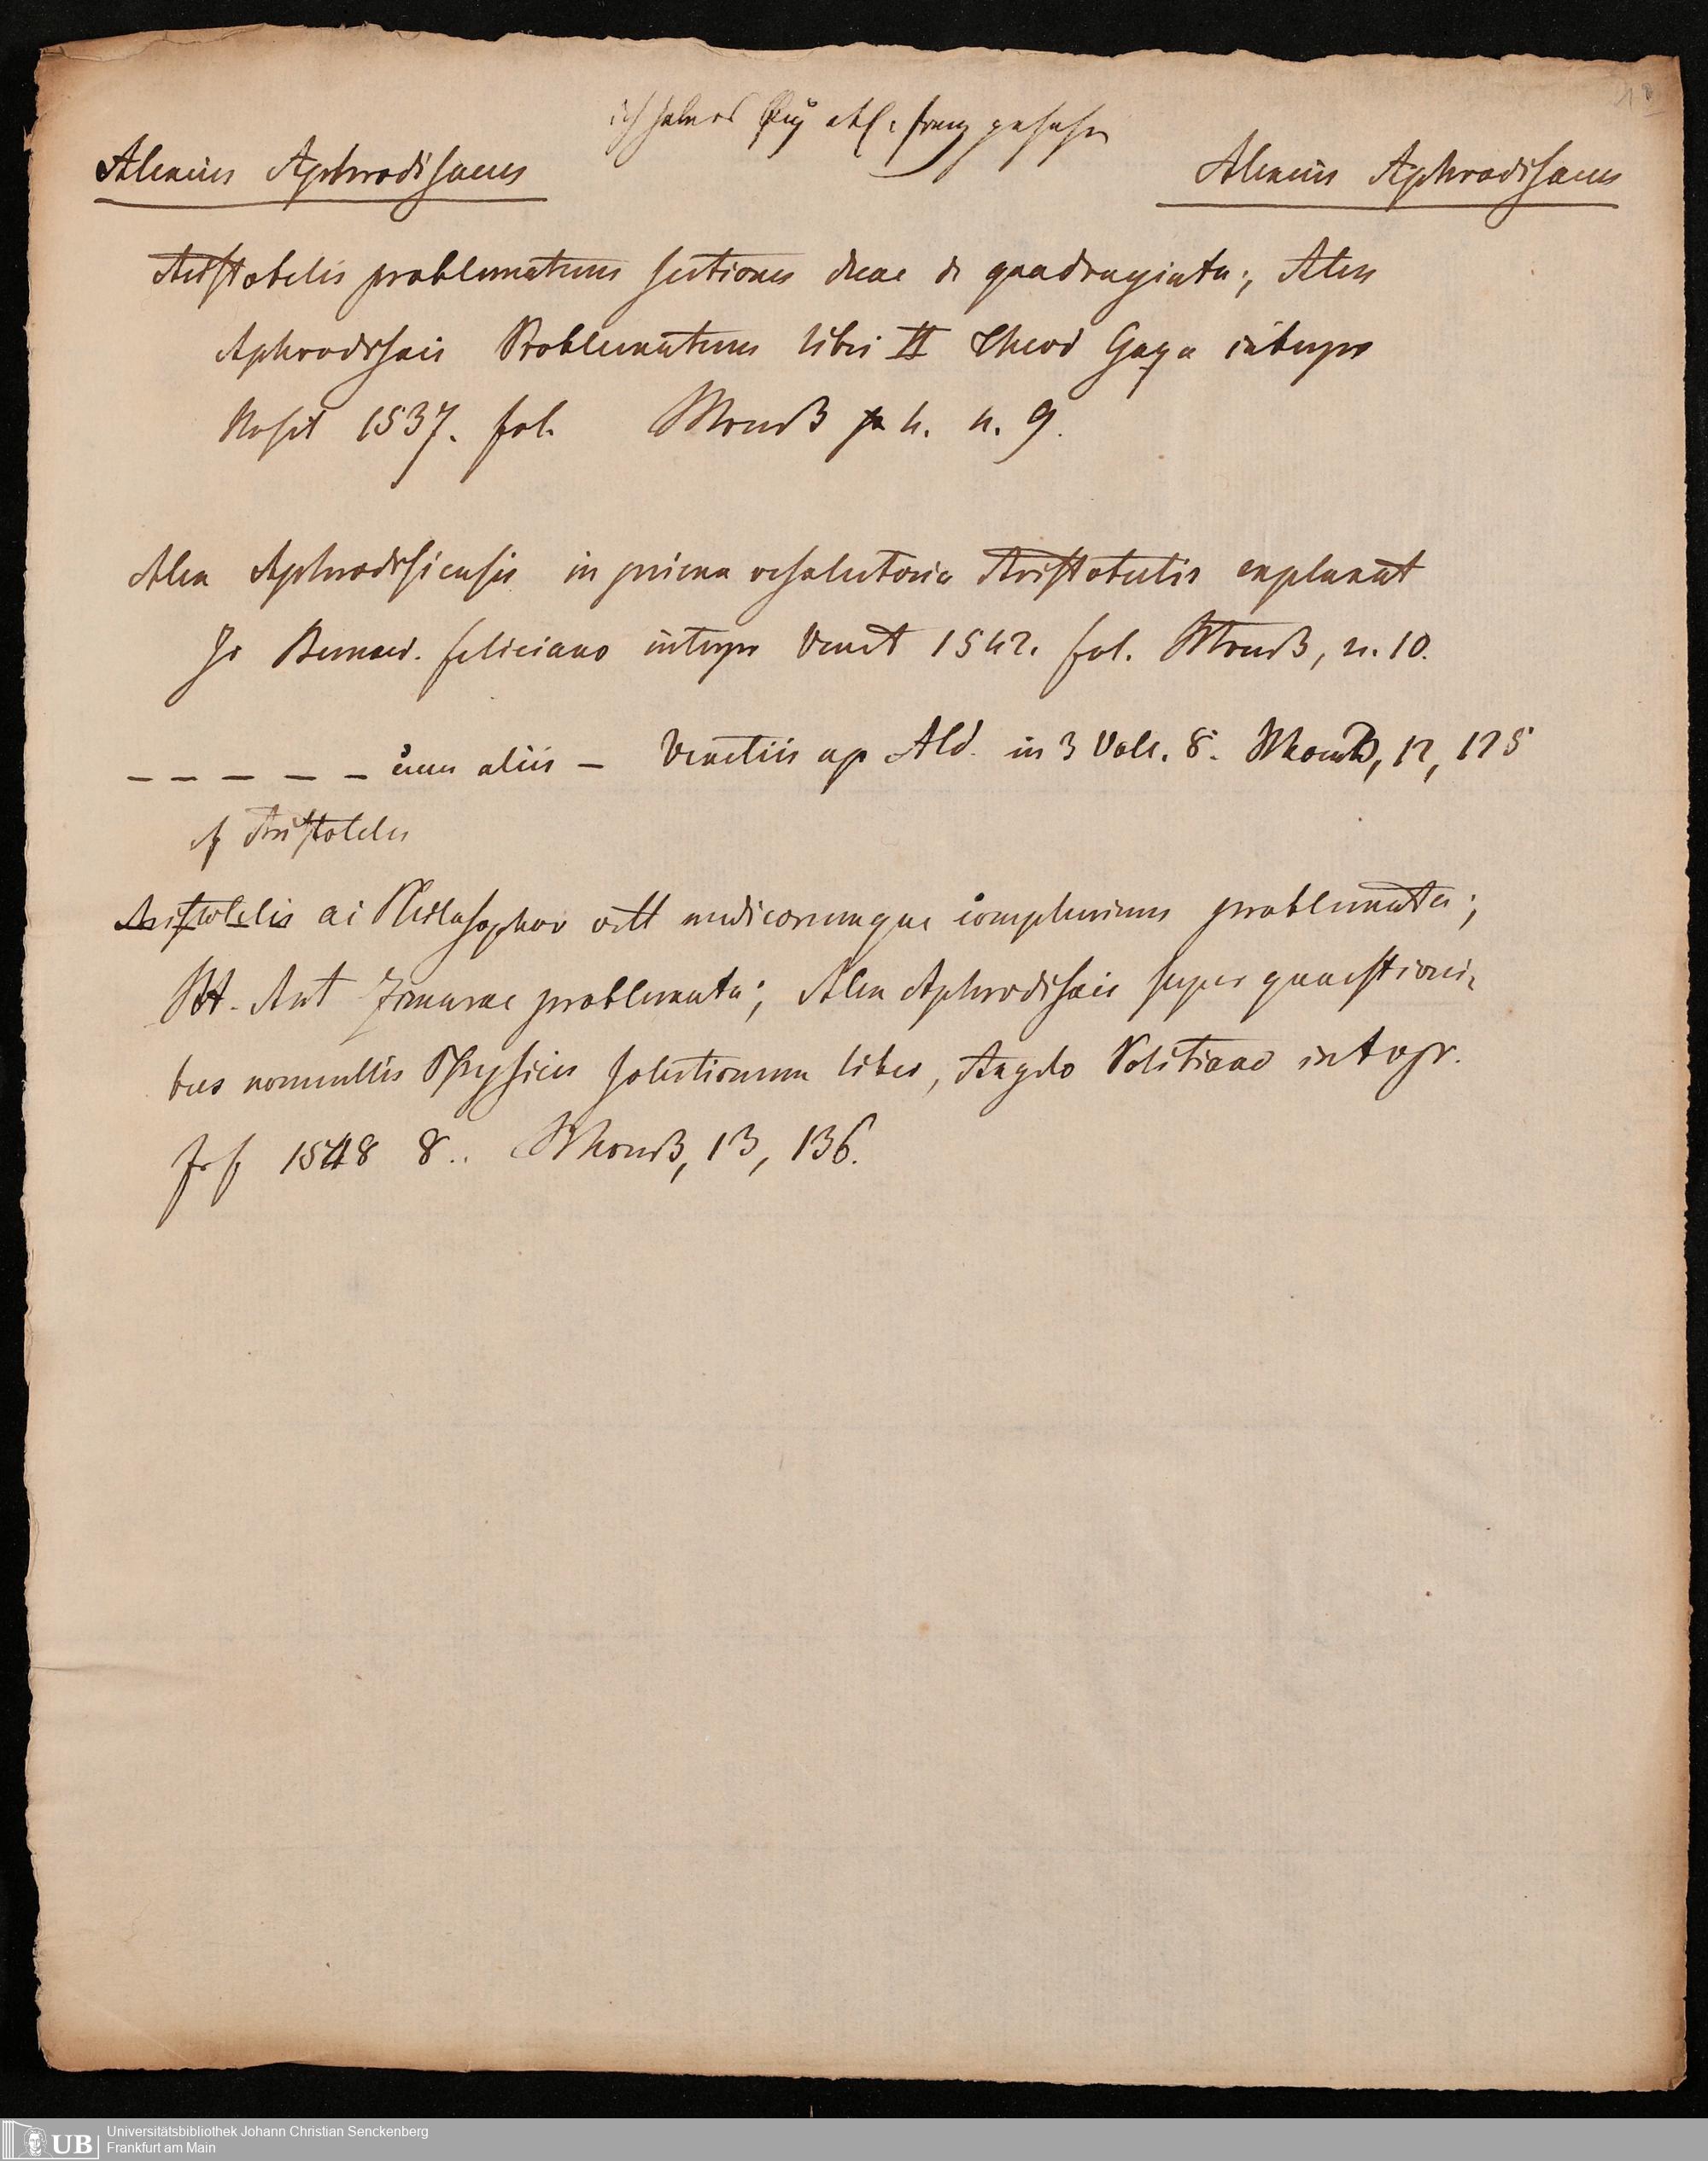 ich habe es
Alexius Aphrodisaeus
Alexius Aphrodisaeus
Aristotelis problematum sectiones duae de quadraginta; Alex
Aphrodisaei Problematum libri II Theod Gaza interpr
Basil 1537. fol. n. 9.
Alex Aphrodisiensis in priora resolutoria Aristotelis explanat
Jo Bernard. feliciano interpr Venet 1542. fol. n. 10.
_ _ _ _ _ cum aliis _ Venetiis ap Ald. in 3 Voll. 8. 12, 125
cf Aristoteles
Aristotelis ac Philosophor medicorumque complurium problemata;
M. Ant Zimarae problemata; Alex Aphrodisaei super quaestioni-
bus nonnullis Physicis solutionum liber, Angelo Politiano interpr.
Frf 1548 8.. 13, 136.
UB
Universitätsbibliothek Johann Christian Senckenberg
Frankfurt am Main